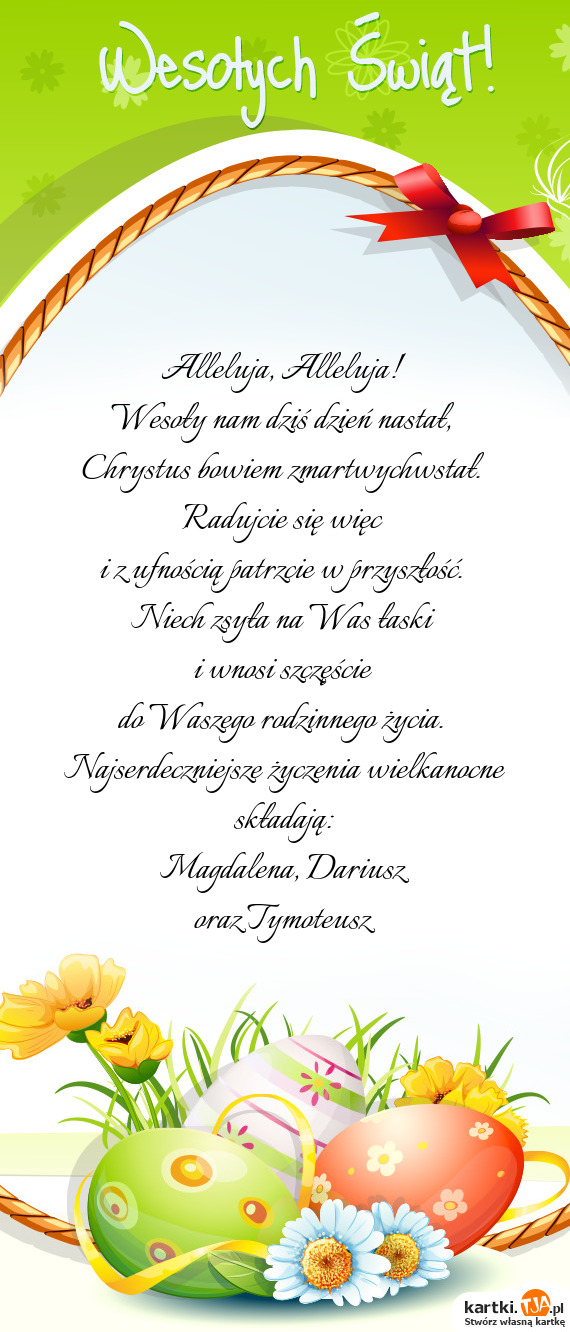 Wesołych Świąt!
Alleluja, Alleluja!
Wesoły nam dziś dzień nastał,
Chrystus bowiem zmartwychwstał.
Radujcie się więc
i z ufnością patrzcie w przyszłość.
Niech zsyła na Was łaski
i wnosi szczęście
do Waszego rodzinnego życia.
Najserdeczniejsze życzenia wielkanocne
składają:
Magdalena, Dariusz
oraz Tymoteusz
kartki.TJA.pl
Stwórz własną kartkę